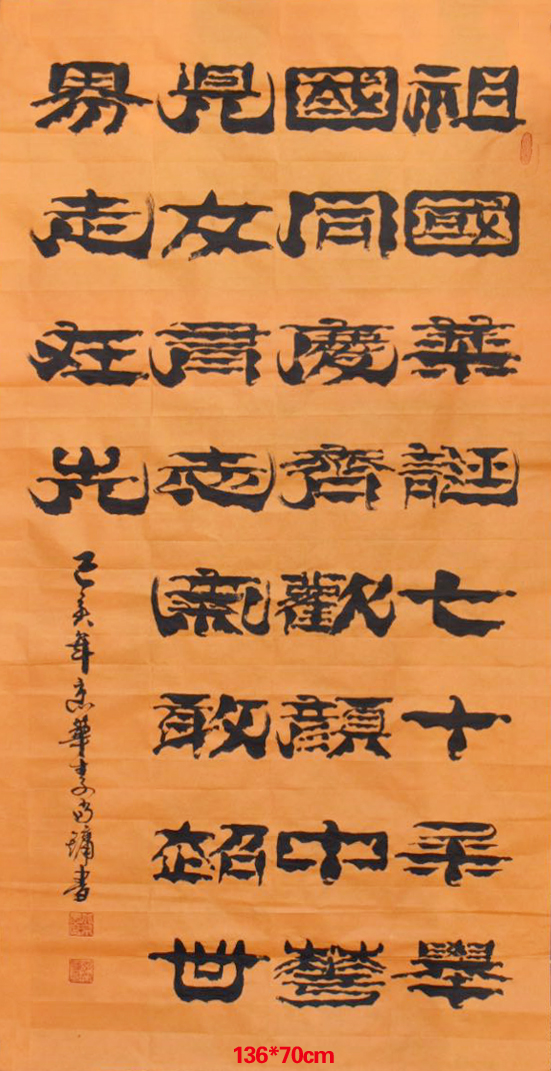 祖國華誕七十年舉
國同慶齊歡顔中華
兒女有志氣敢超世
界走在先
己亥年京華李墉書
136*70cm